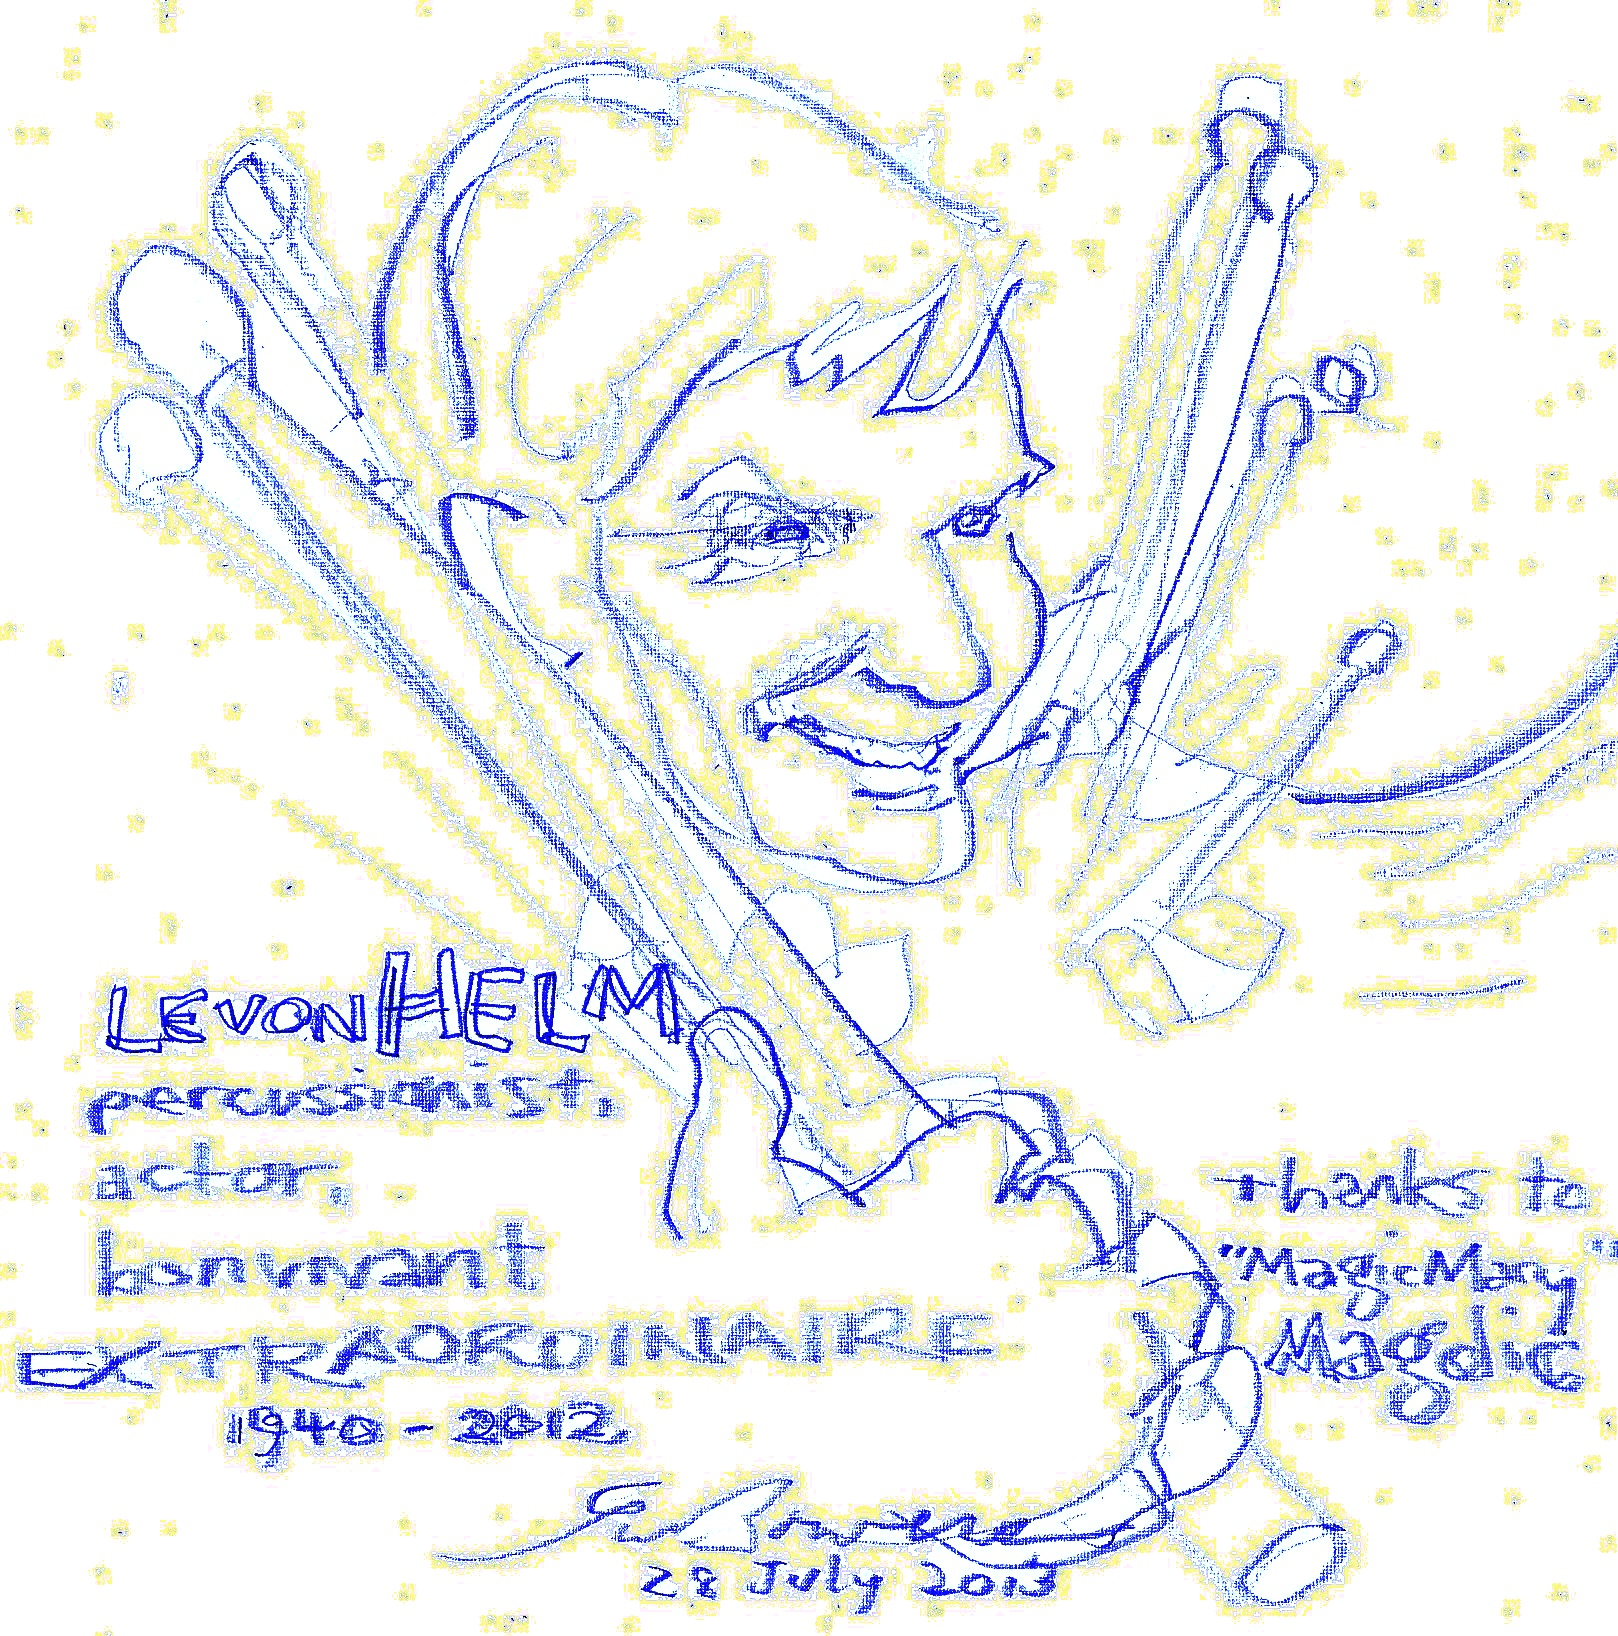 LEVON HELM
percussionist,
actor,
bonvivant
EXTRAORDINAIRE
1940-2012.
thanks to
"Magic Mary"
Magdic
28 July 2013